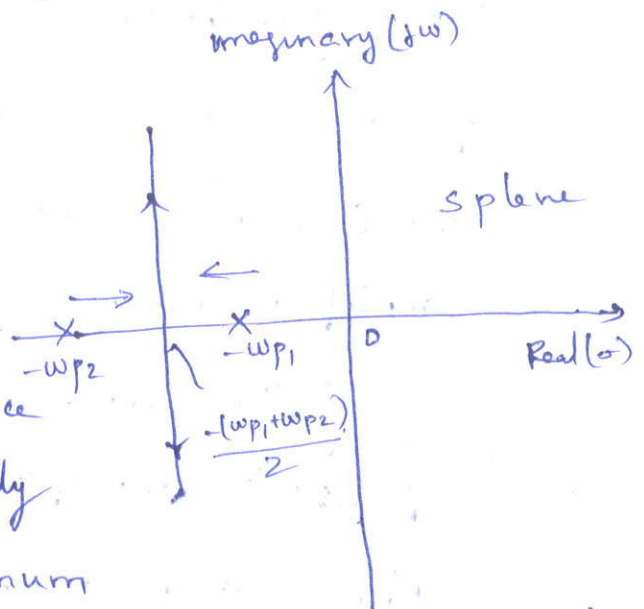 imaginary (jω)
s plane
-ωp2
-ωp1
0
Real (σ)
-(ωp1+ωp2)
2
ce
dy
num